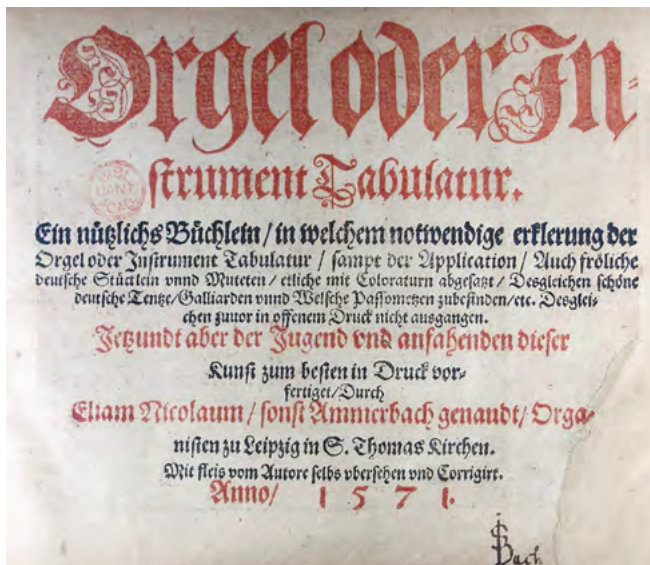 Orgel oder In-
strument Tabulatur.
Ein nützlichs Büchlein / in welchem notwendige erklerung der
Orgel oder Instrument Tabulatur / sampt der Application / Auch fröliche
deutsche Stücklein vnnd Muteten / etliche mit Coloraturn abgesatzt / Desgleichen schöne
deutsche Tentze / Galliarden vnnd Welsche Passometzen zubefinden / etc. Desglei-
chen zuuor in offenem Druck nicht ausgangen.
Jetzundt aber der Jugend vnd anfahenden dieser
Kunst zum besten in Druck vor-
fertiget / Durch
Eliam Nicolaum / sonst Ammerbach genandt / Orga-
nisten zu Leipzig in S. Thomas Kirchen.
Mit fleis vom Autore selbs vbersehen vnd Corrigirt.
Anno / 1571.
Bach